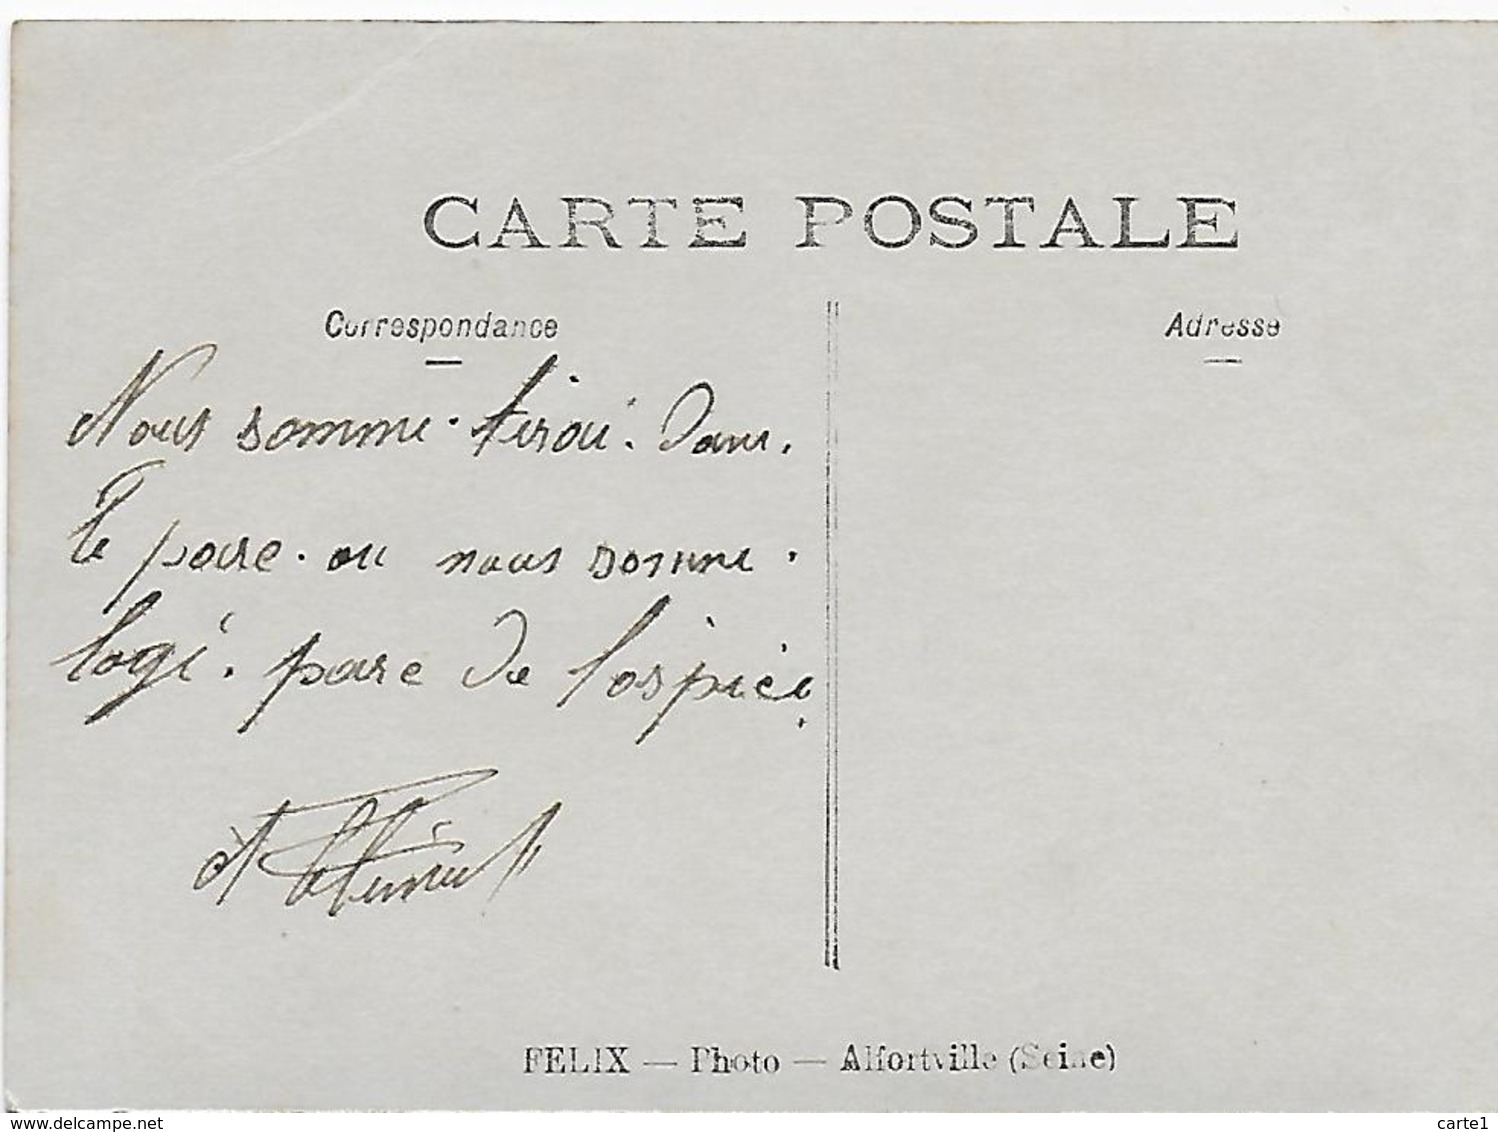 CARTE POSTALE
Correspondance
Adresse
Nous somme. tiroi. Dans.
le parc. ou nous somme.
logi. parc de lospice.
FELIX — Photo — Alfortville (Seine)
delcampe.net
carte1